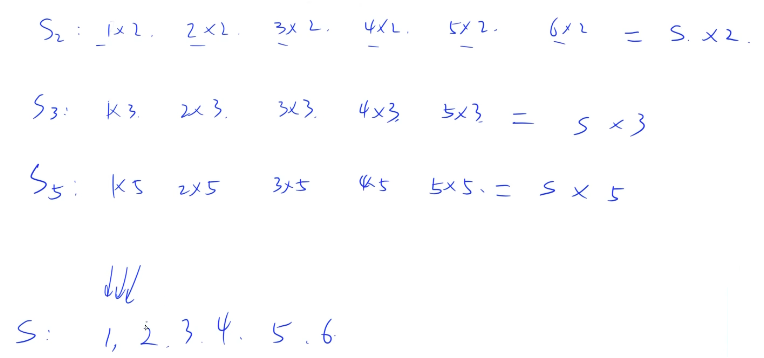 S₂: 1×2. 2×2. 3×2. 4×2. 5×2. 6×2 = S. ×2.
S₃: 1×3 2×3. 3×3. 4×3 5×3 = S ×3
S₅: 1×5 2×5 3×5 4×5 5×5. = S × 5
S: 1, 2. 3. 4. 5. 6.